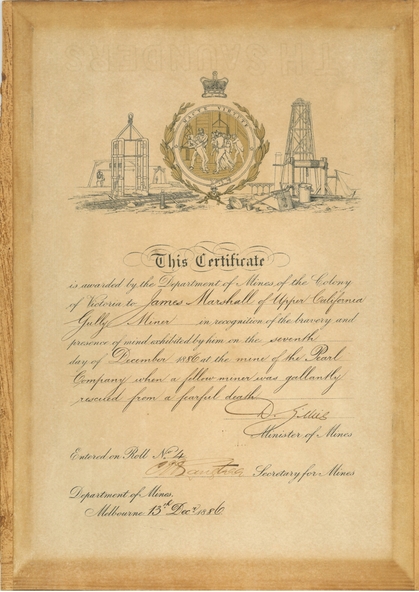 This Certificate
is awarded by the Department of Mines of the Colony
of Victoria to James Marshall of Upper California
Gully Miner in recognition of the bravery and
presence of mind exhibited by him on the seventh
day of December 1886 at the mine of the Pearl
Company when a fellow miner was gallantly
rescued from a fearful death
Minister of Mines
Entered on Roll No. 4
Secretary for Mines
Department of Mines,
Melbourne 13th Decr. 1886